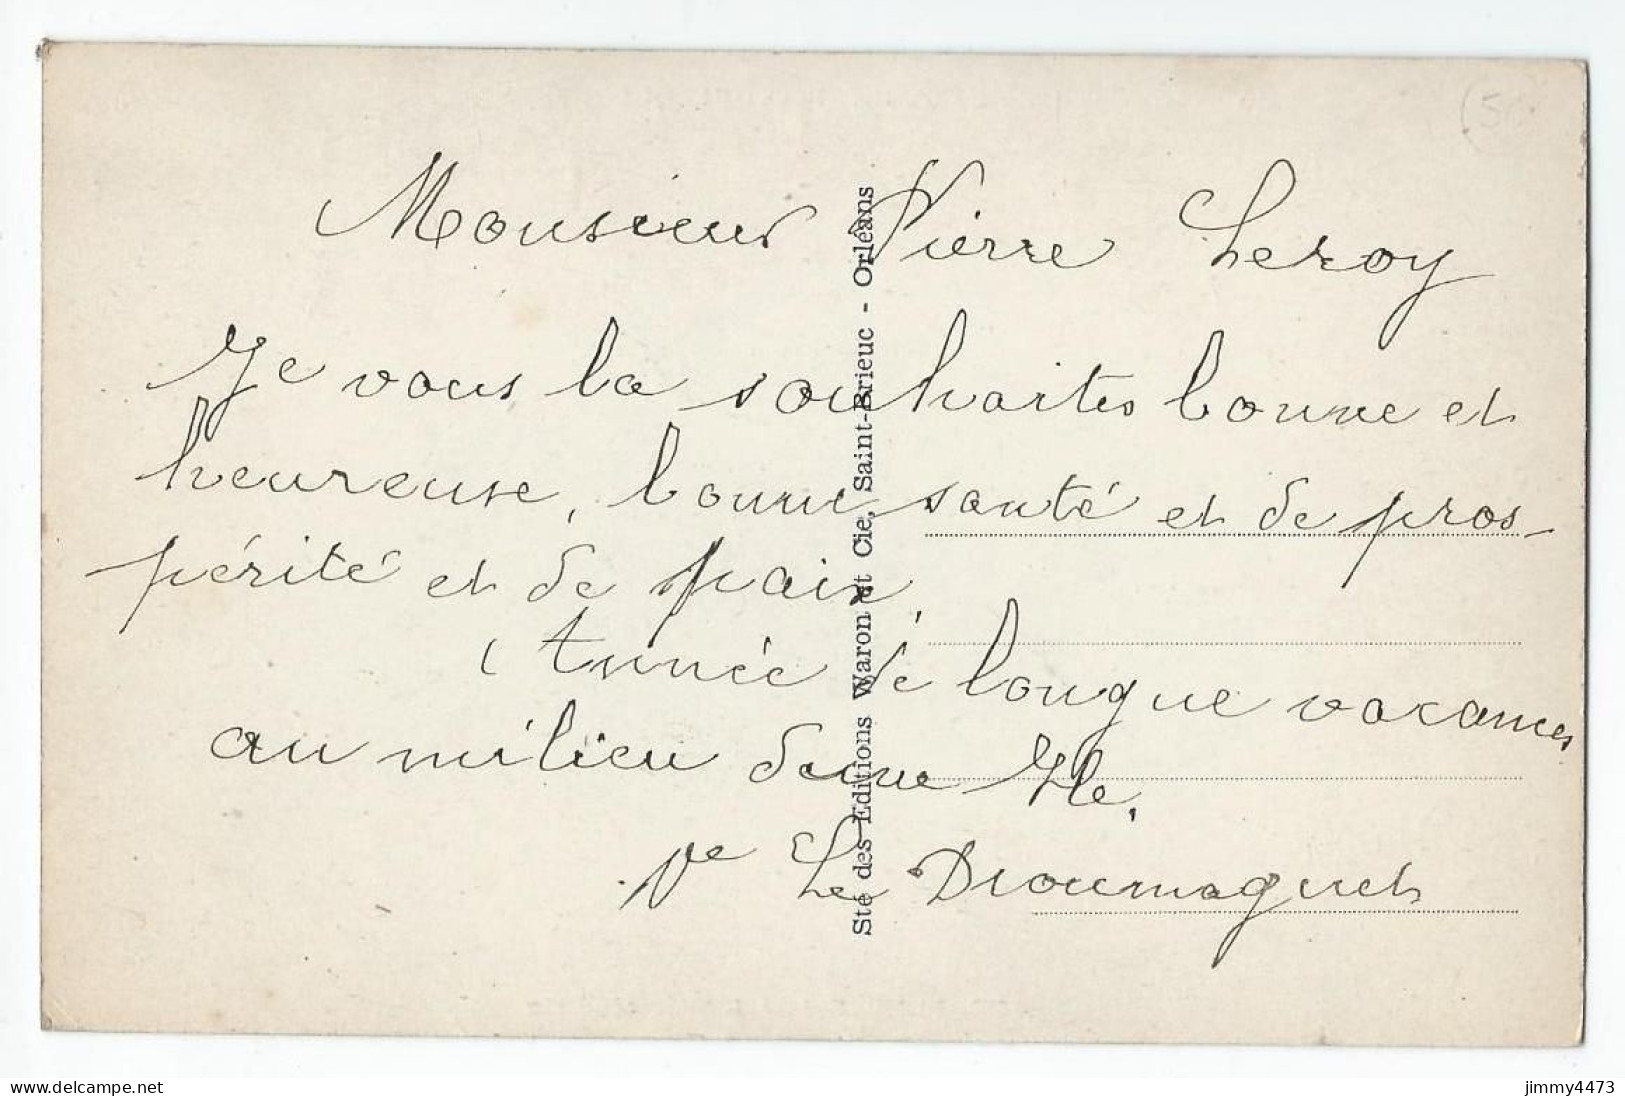 Monsieur Pierre Leroy
Je vous la souhaites bonne et
heureuse, bonne santé et de pros-
périté et de paix,
(Année de longue vacances
au milieu dune Ile.
Ve Le Dioumaguet
Ste des Editions Waron et Cie, Saint-Brieuc - Orléans
(5
www.delcampe.net
jimmy4473